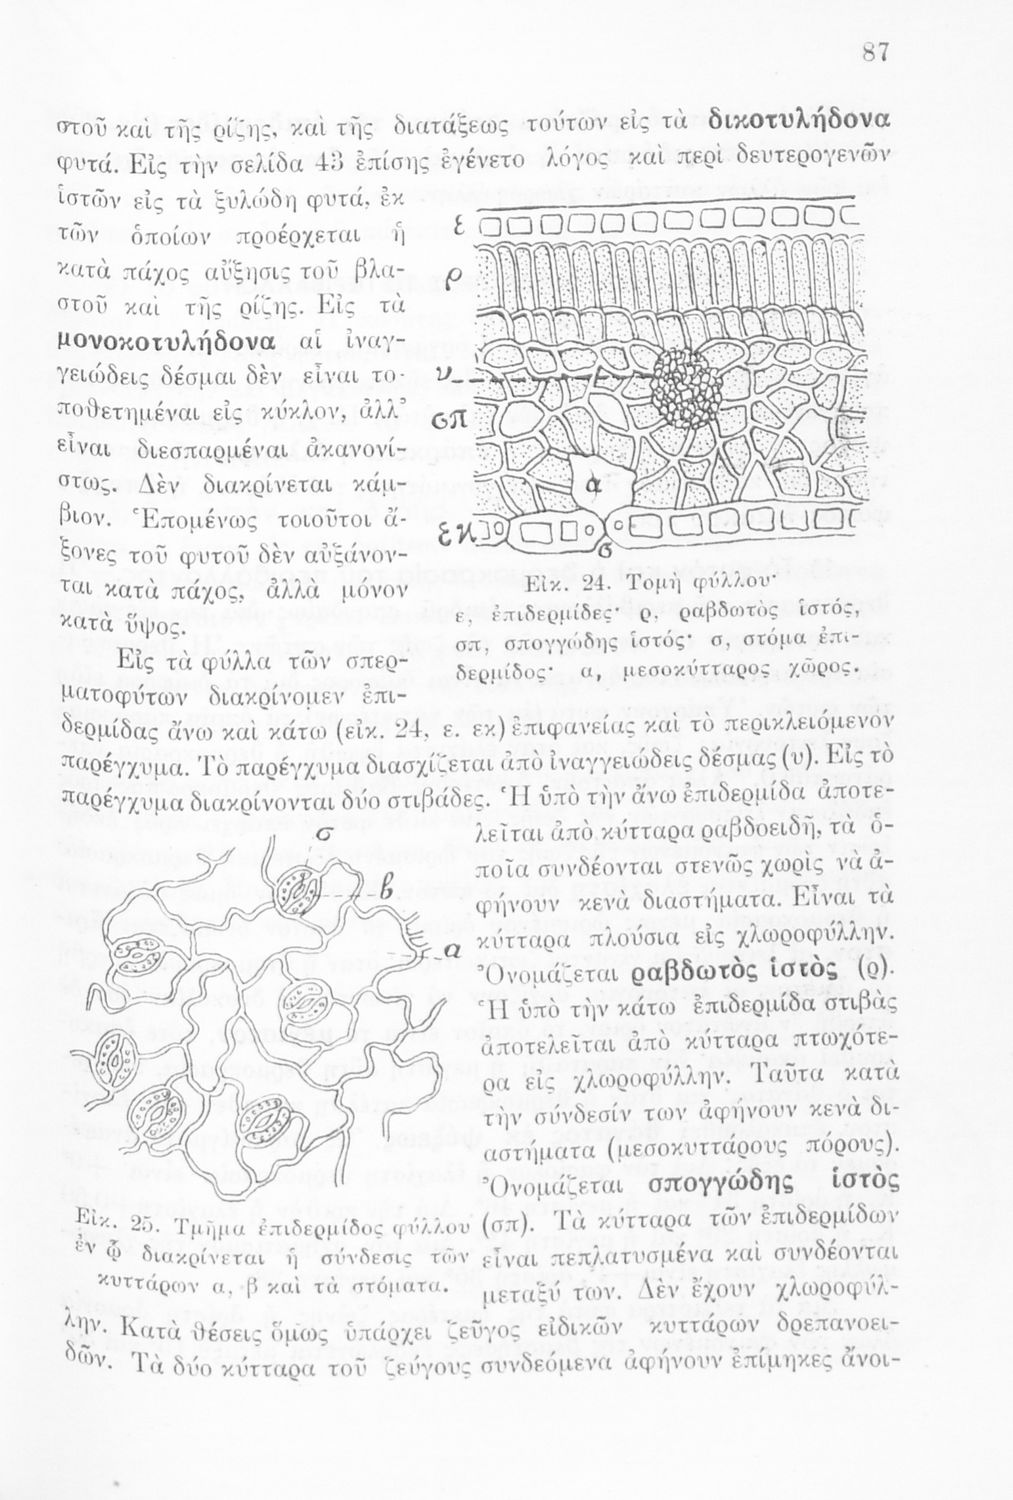 87
στοῦ καὶ τῆς ρίζης, καὶ τῆς διατάξεως τούτων εἰς τὰ δικοτυλήδονα
φυτά. Εἰς τὴν σελίδα 43 ἐπίσης ἐγένετο λόγος καὶ περὶ δευτερογενῶν
ἱστῶν εἰς τὰ ξυλώδη φυτά, ἐκ
τῶν ὁποίων προέρχεται ἡ
κατὰ πάχος αὔξησις τοῦ βλα-
στοῦ καὶ τῆς ρίζης. Εἰς τὰ
μονοκοτυλήδονα αἱ ἰναγ-
γειώδεις δέσμαι δὲν εἶναι το-
ποθετημέναι εἰς κύκλον, ἀλλ’
εἶναι διεσπαρμέναι ἀκανονί-
στως. Δὲν διακρίνεται κάμ-
βιον. Ἑπομένως τοιοῦτοι ἄ-
ξονες τοῦ φυτοῦ δὲν αὐξάνον-
ται κατὰ πάχος, ἀλλὰ μόνον
κατὰ ὕψος.
ε
ρ
υ
σπ
α
εκ
σ
Εἰκ. 24. Τομὴ φύλλου·
ε, ἐπιδερμίδες· ρ, ραβδωτὸς ἱστός,
σπ, σπογγώδης ἱστός· σ, στόμα ἐπι-
δερμίδος· α, μεσοκύτταρος χῶρος.
Εἰς τὰ φύλλα τῶν σπερ-
ματοφύτων διακρίνομεν ἐπι-
δερμίδας ἄνω καὶ κάτω (εἰκ. 24, ε. εκ) ἐπιφανείας καὶ τὸ περικλειόμενον
παρέγχυμα. Τὸ παρέγχυμα διασχίζεται ἀπὸ ἰναγγειώδεις δέσμας (υ). Εἰς τὸ
παρέγχυμα διακρίνονται δύο στιβάδες. Ἡ ὑπὸ τὴν ἄνω ἐπιδερμίδα ἀποτε-
λεῖται ἀπὸ κύτταρα ραβδοειδῆ, τὰ ὁ-
ποῖα συνδέονται στενῶς χωρὶς νὰ ἀ-
φήνουν κενὰ διαστήματα. Εἶναι τὰ
κύτταρα πλούσια εἰς χλωροφύλλην.
Ὀνομάζεται ραβδωτὸς ἱστὸς (ρ).
Ἡ ὑπὸ τὴν κάτω ἐπιδερμίδα στιβὰς
ἀποτελεῖται ἀπὸ κύτταρα πτωχότε-
ρα εἰς χλωροφύλλην. Ταῦτα κατὰ
τὴν σύνδεσίν των ἀφήνουν κενὰ δι-
αστήματα (μεσοκυττάρους πόρους).
Ὀνομάζεται σπογγώδης ἱστὸς
(σπ). Τὰ κύτταρα τῶν ἐπιδερμίδων
εἶναι πεπλατυσμένα καὶ συνδέονται
μεταξύ των. Δὲν ἔχουν χλωροφύλ-
σ
β
α
Εἰκ. 25. Τμῆμα ἐπιδερμίδος φύλλου
ἐν ᾧ διακρίνεται ἡ σύνδεσις τῶν
κυττάρων α, β καὶ τὰ στόματα.
λην. Κατὰ θέσεις ὅμως ὑπάρχει ζεῦγος εἰδικῶν κυττάρων δρεπανοει-
δῶν. Τὰ δύο κύτταρα τοῦ ζεύγους συνδεόμενα ἀφήνουν ἐπίμηκες ἄνοι-